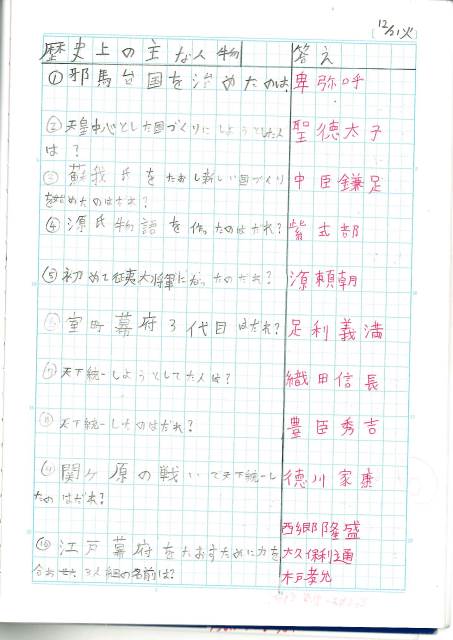 12/21(火)
歴史上の主な人物 答え
①邪馬台国を治めたのは、 卑弥呼
②天皇中心とした国づくりにしようとした人 聖徳太子
は?
③蘇我氏をたおし新しい国づくり 中臣鎌足
を始めたのはだれ?
④源氏物語を作ったのはだれ? 紫式部
⑤初めて征夷大将軍になったのだれ? 源頼朝
⑥室町幕府3代目はだれ? 足利義満
⑦天下統一しようとしてた人は? 織田信長
⑧天下統一したのはだれ? 豊臣秀吉
⑨関ヶ原の戦いで天下統一し 徳川家康
たのはだれ?
西郷隆盛
⑩江戸幕府をたおすために力を 大久保利通
合わせた3人組の名前は? 木戸孝允